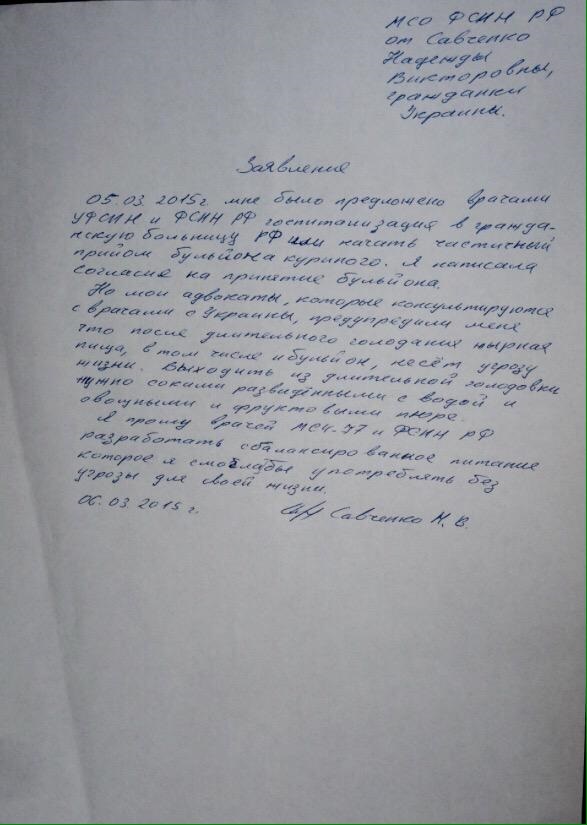 МСО ФСИН РФ
от Савченко
Надежды
Викторовны,
гражданки
Украины.
Заявление
05.03.2015г. мне было предложено врачами
УФСИН и ФСИН РФ госпитализация в гражда-
нскую больницу РФ или начать частичный
прийом бульйона куриного. Я написала
согласие на принятие бульйона.
Но мои адвокаты, которые консультируются
с врачами с Украины, предупредили меня
что после длительного голодания жырная
пища, в том числе и бульйон, несёт угрозу
жизни. Выходить из длительной голодовки
нужно соками разведёнными с водой и
овощными и фруктовими пюре.
Я прошу врачей МСЧ-77 и ФСИН РФ
разработать сбалансированное питание
которое я смогла бы употреблять без
угрозы для моей жизни.
06.03.2015г. Савченко Н.В.